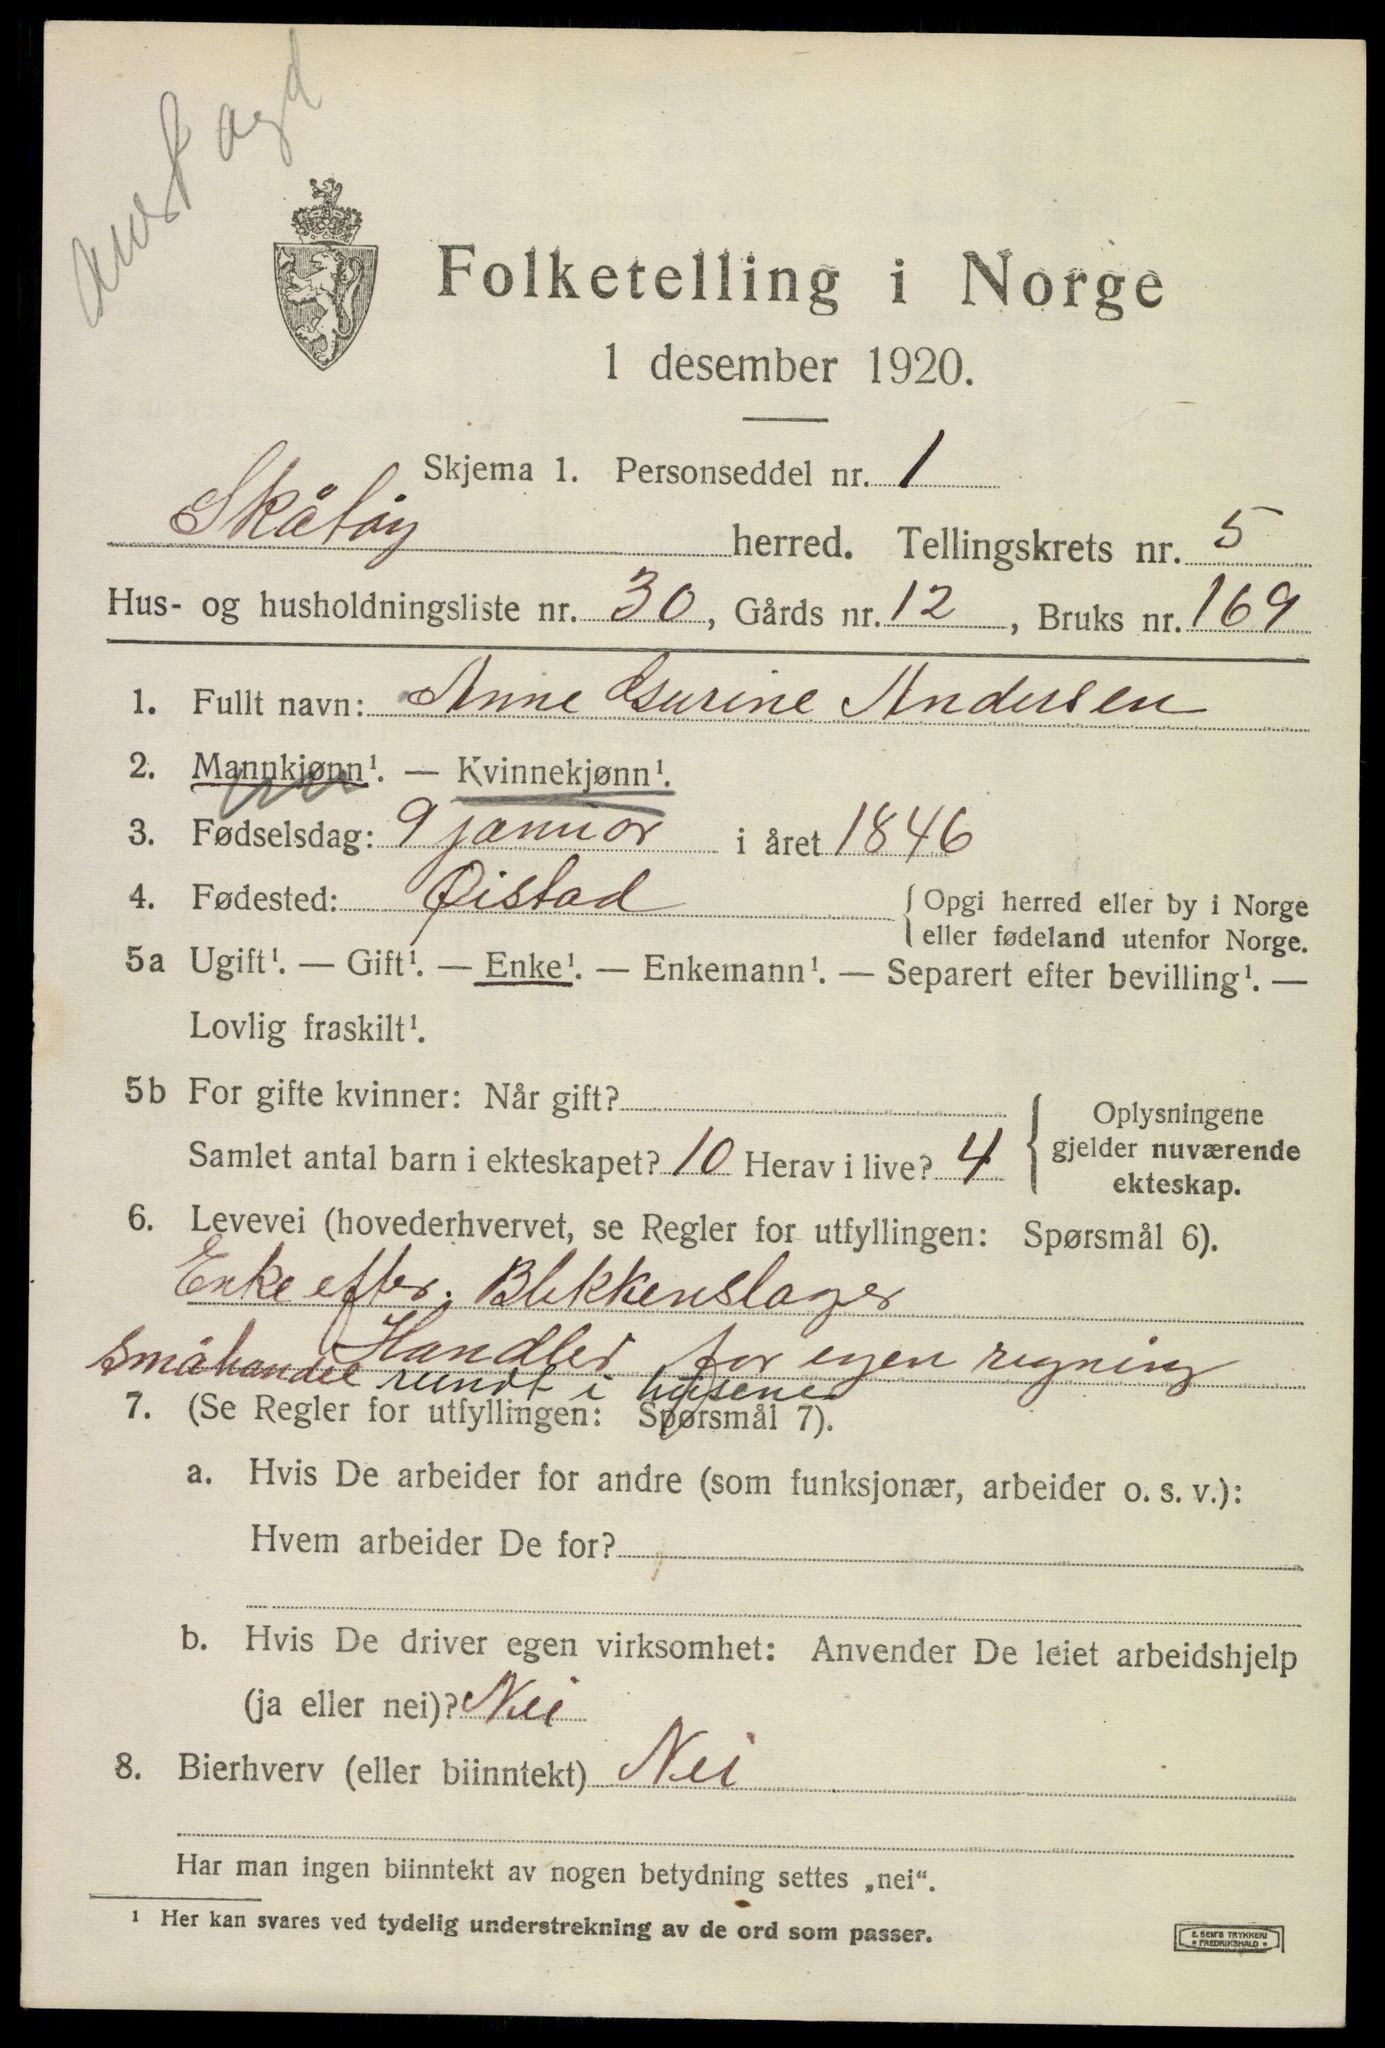 Aust agd
Folketelling i Norge
1 desember 1920.
Skjema 1. Personseddel nr. 1
Skåtøy herred. Tellingskrets nr. 5
Hus- og husholdningsliste nr. 30, Gårds nr. 12, Bruks nr. 169
1. Fullt navn: Anne Gurine Andersen
2. Mannkjønn¹. — Kvinnekjønn¹.
3. Fødselsdag: 9 januar i året 1846
4. Fødested: Øistad { Opgi herred eller by i Norge
eller fødeland utenfor Norge.
5a Ugift¹. — Gift¹. — Enke¹. — Enkemann¹. — Separert efter bevilling¹. —
Lovlig fraskilt¹.
5b For gifte kvinner: Når gift?
Samlet antal barn i ekteskapet? 10 Herav i live? 4
Oplysningene
gjelder nuværende
ekteskap.
6. Levevei (hovederhvervet, se Regler for utfyllingen: Spørsmål 6).
Enke efter. Blikkenslager
Handler for egen regning
Småhandel rundt i husene
7. (Se Regler for utfyllingen: Spørsmål 7).
a. Hvis De arbeider for andre (som funksjonær, arbeider o. s. v.):
Hvem arbeider De for?
b. Hvis De driver egen virksomhet: Anvender De leiet arbeidshjelp
(ja eller nei)? Nei
8. Bierhverv (eller biinntekt) Nei
Har man ingen biinntekt av nogen betydning settes „nei“.
¹ Her kan svares ved tydelig understrekning av de ord som passer.
E. SEM'S TRYKKERI
FREDRIKSHALD